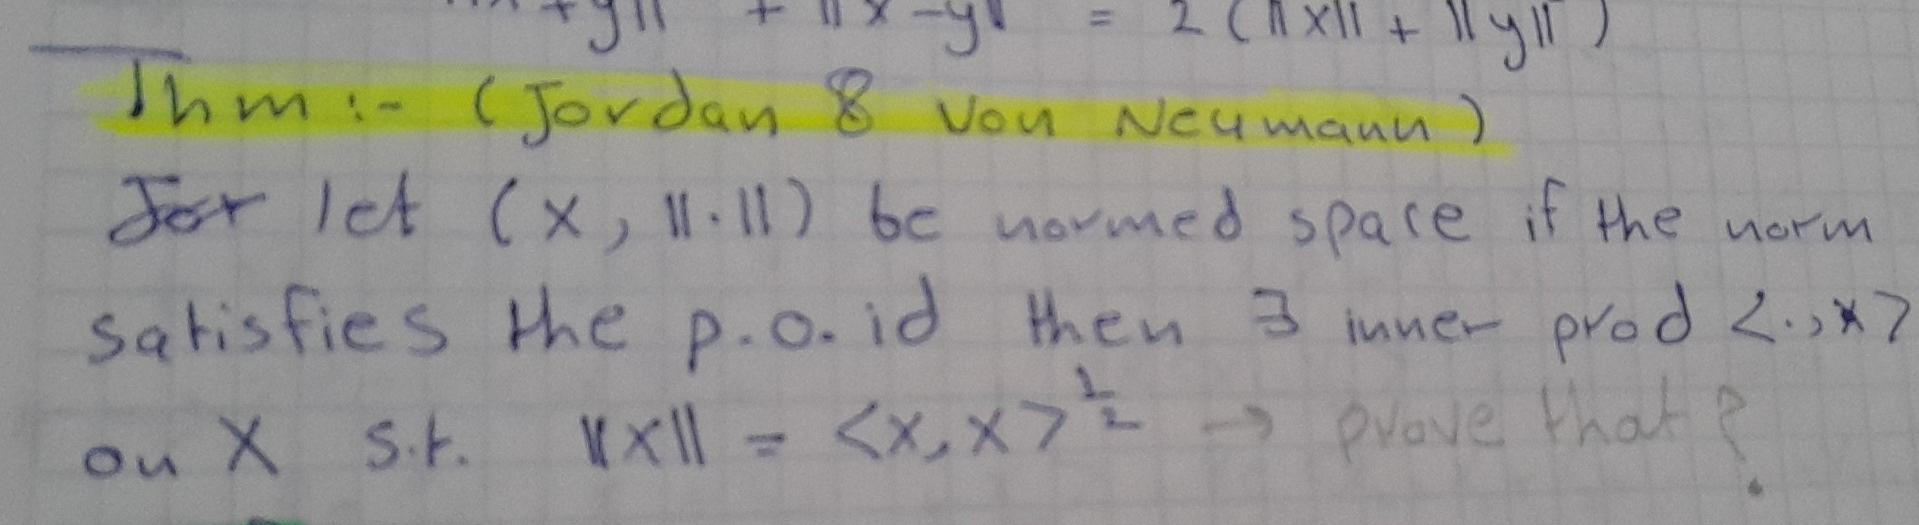 +y|| + ||x-y|| = 2(||x|| + ||y||)
Thm:- (Jordan & Von Neumann)
let (x, ||.||) be normed space if the norm
satisfies the p.o.id then ∃ inner prod <.,x>
on X s.t. ||x|| = <x,x>^½ → prove that?